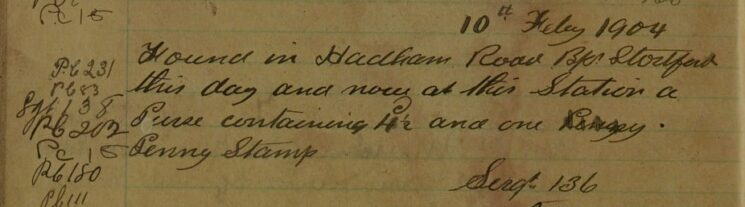 Pc 15
10th Feby 1904
Pc 231
Pc 83
Sgt 138
Pc 202
Pc 15
Pc 180
Pc 111
Found in Hadham Road Bps Stortford
this day and now at this Station a
Purse containing and one Penny.
Penny Stamp
Sergt 136